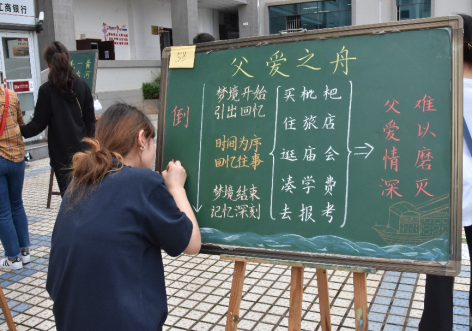 工商银行
58
父爱之舟
倒
梦境开始
引出回忆
时间为序
回忆往事
梦境结束
记忆深刻
买枇杷
住旅店
逛庙会
凑学费
去报考
父爱情深
难以磨灭